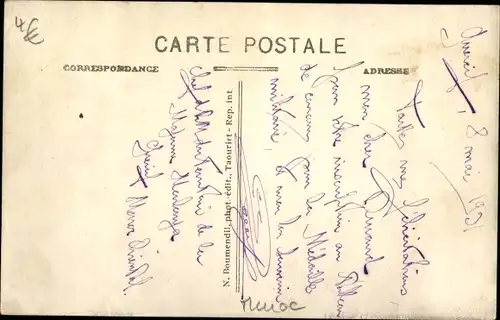 4€
CARTE POSTALE
CORRESPONDANCE
ADRESSE
N. Boumendil, phot.-édit., Taourirt - Rep. int.
Guercif, 8 mai 1931
Toutes mes félicitations,
mon cher Durand,
pour votre inscription au Tableau
de concours pour la Médaille
militaire, et mon bon souvenir
du Territoire de la
Guercif Maroc Oriental
Maroc